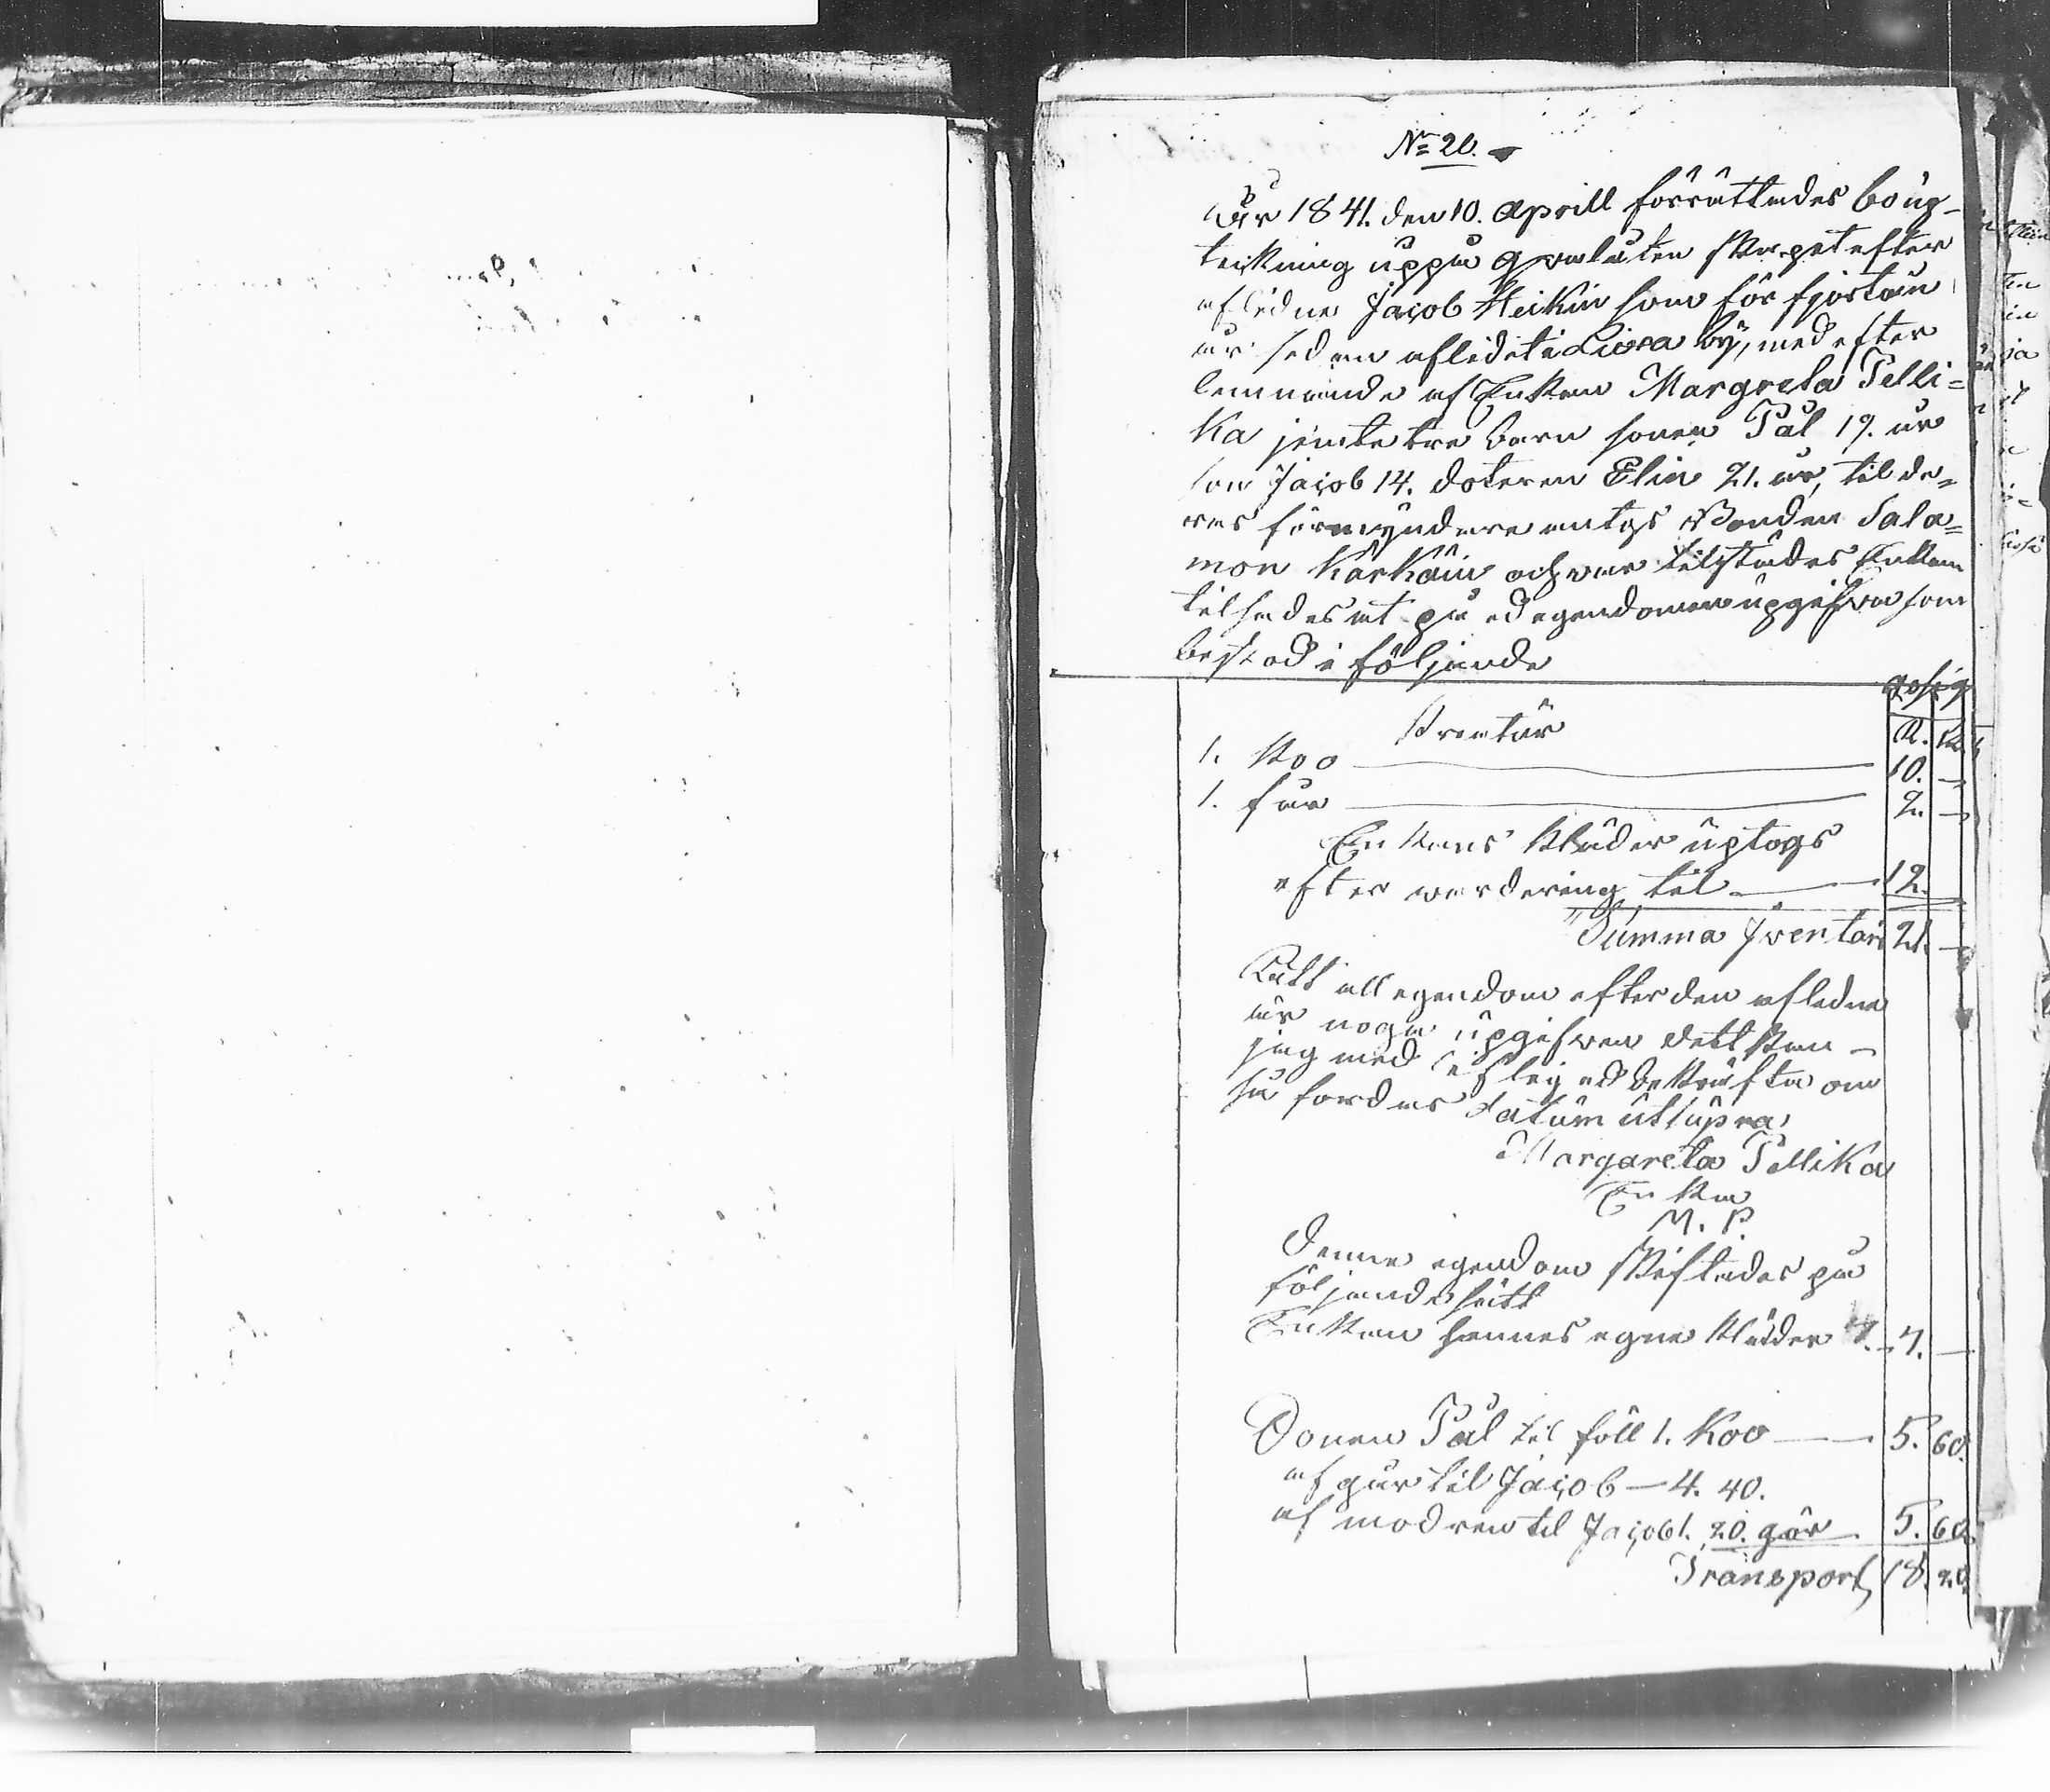 No 20.
År 1841. den 10. Aprill förrättades boüp-
tekning üppå qvarlåtenskapet efter
aflidne Jacob Heikin som för fjortan
år sedan aflidet i Lissa by, med efter
lemnande af Enkan Margreta Pelli=
ka jemte tre barn sonen Pål 19. år
son Jacob 14. doteren Elin 21. år, til de=
ras förmyndare antogs Bonden Sala=
mon Karkäin och var tilstädes Enkan
tilsades at på ed egendomen üpgifva som
bestod i följande
R. K.
Kreatür
1. Koo 10. -
1. får 2. -
Enkans kläder üptogs
efter värdering til 12.
Summa Jventari 21. -
Ratt all egendom efter den afledne
är noga üpgifven dett kan -
jag med lifleg ed bekräfta om
så fordras Datum ütsüpra
Margareta Pellika
Enka
M. P.
Denne egendom skiftades på
följande sätt
Enkan hennes egna kläder 7. 7. -
Sonen Pål til föll 1. Koo 5. 60.
af går til Jacob - 4. 40.
af modren til Jacob 1. 20. gör 5. 60.
Transport 18. 20.